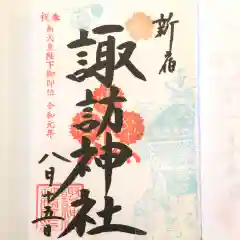 新宿
諏訪神社
奉祝 新天皇陛下御即位 令和元年
八月十五日